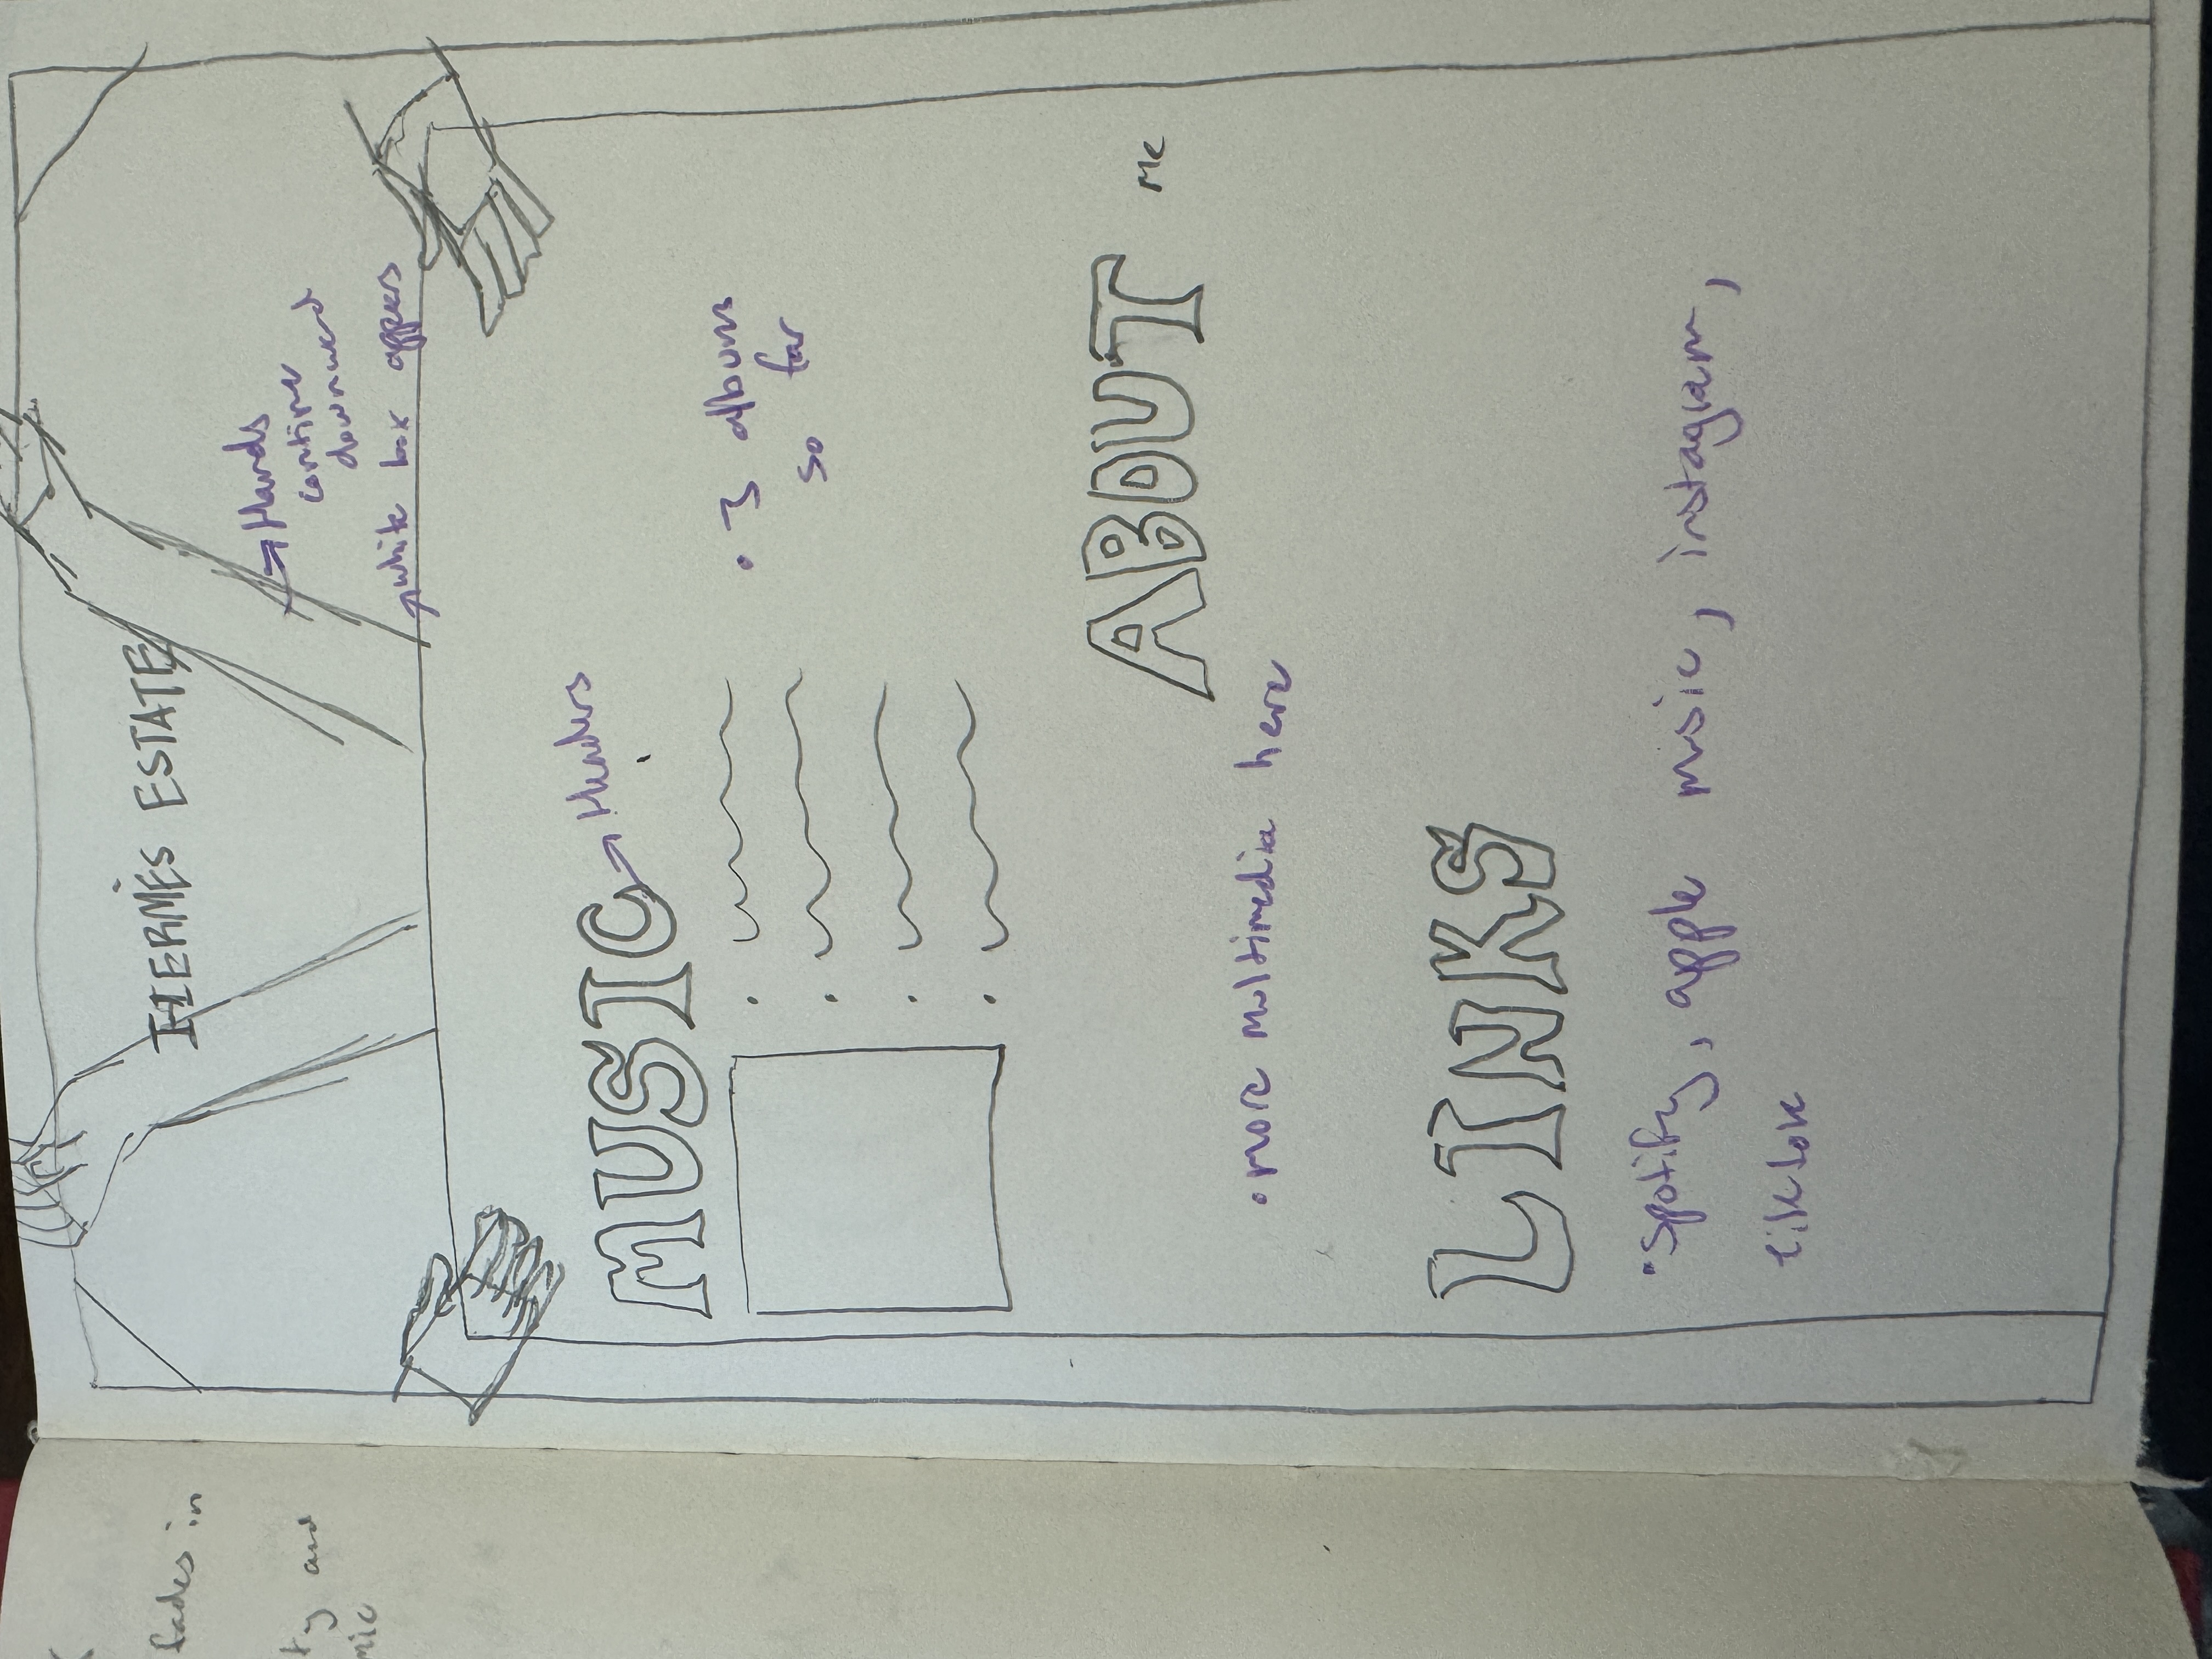 fades in
ty and
mic
HERMÈS ESTATE
Hands
continue
downward
white box appears
MUSIC
Headers
• 3 albums
so far
ABOUT me
• more multimedia here
LINKS
• spotify, apple music, instagram,
tiktok